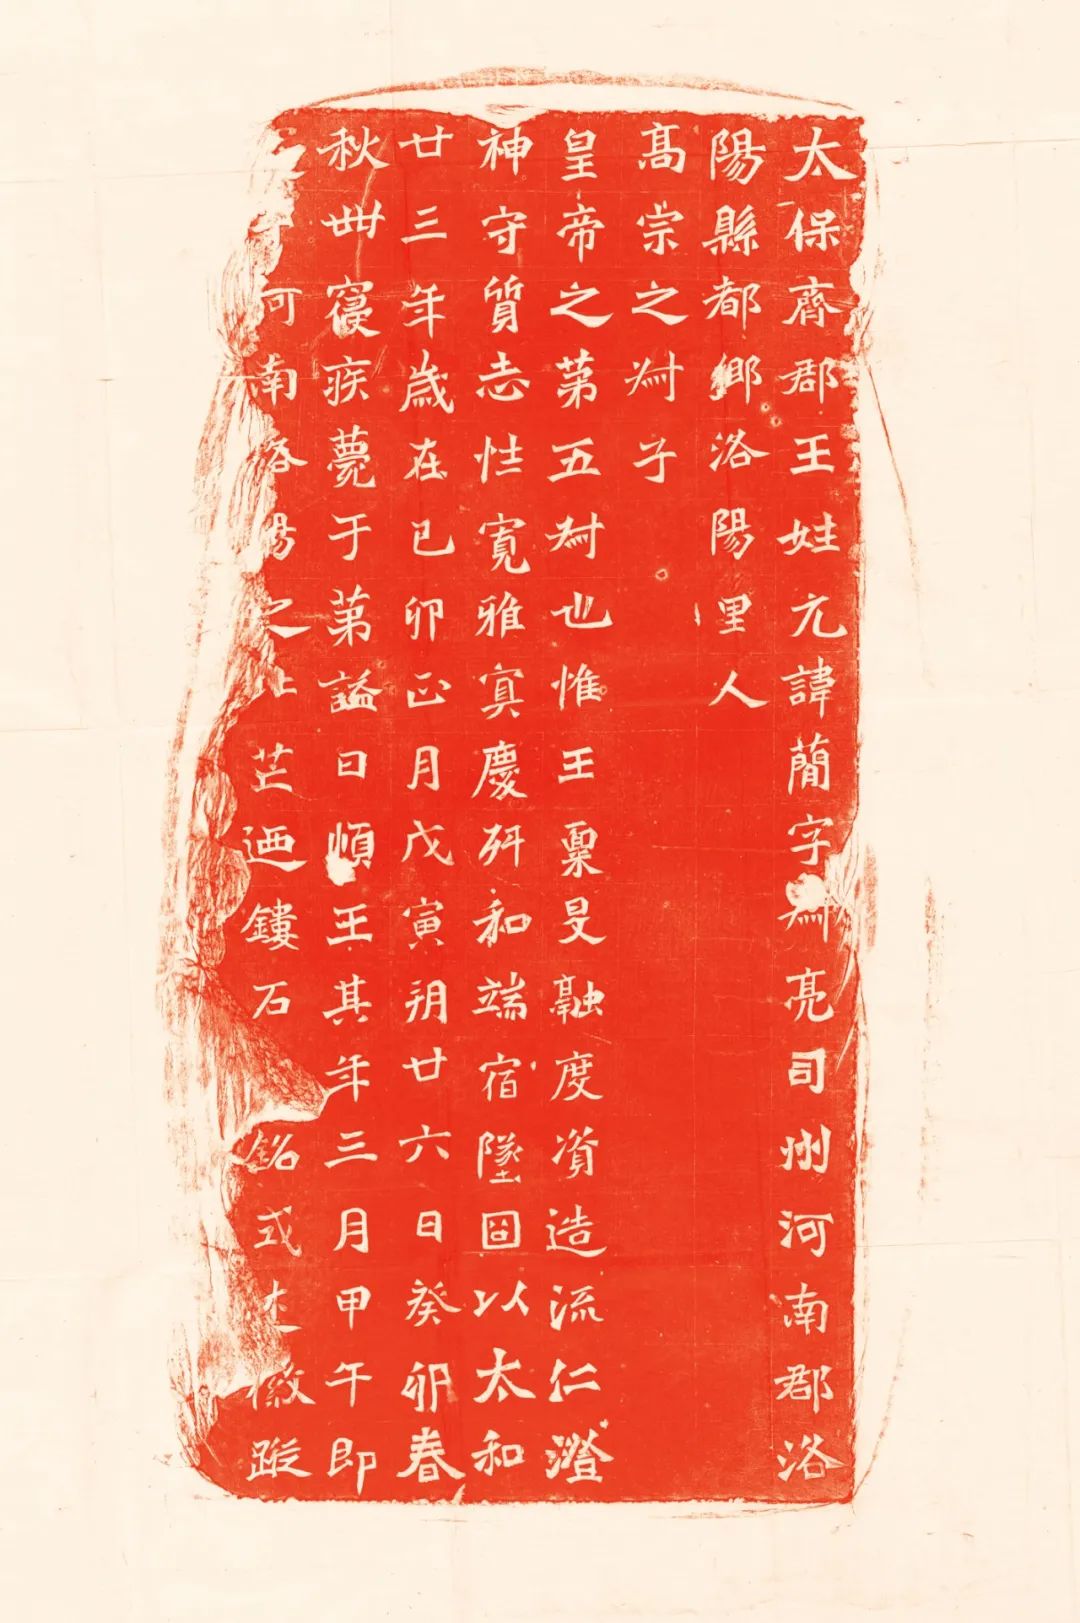 太保齊郡王姓元諱簡字叔亮司州河南郡洛
陽縣都鄉洛陽里人
高宗之叔子
皇帝之第五叔也惟王稟旻融度資造流仁澄
神守質志性寬雅寘慶舛和端宿墜固以太和
廿三年歲在己卯正月戊寅朔廿六日癸卯春
秋卌寢疾薨于第謚曰順王其年三月甲午即
于河南洛陽之北芒迺鏤石銘式述徽蹤